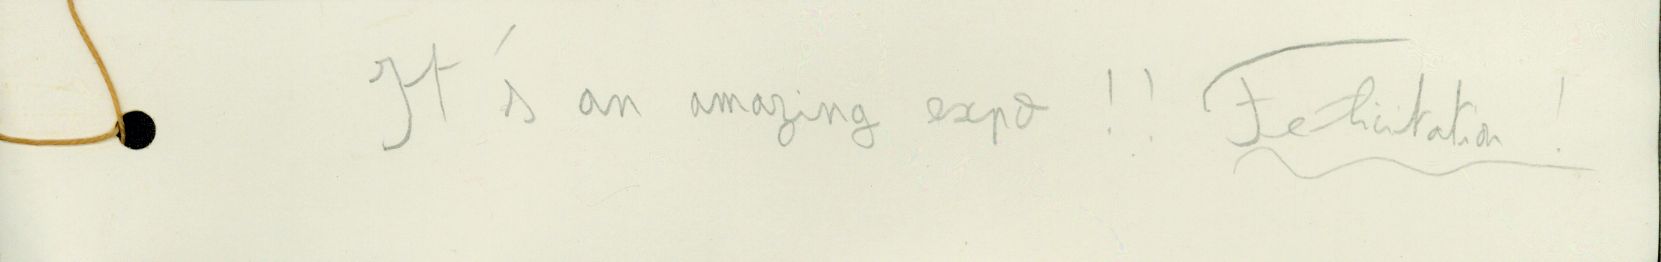 It's an amazing expo !! Felicitation !